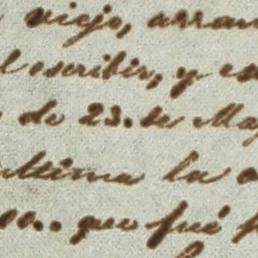 viejo, arran
escribir, y
de 23. de Ma
ultima la
que fué